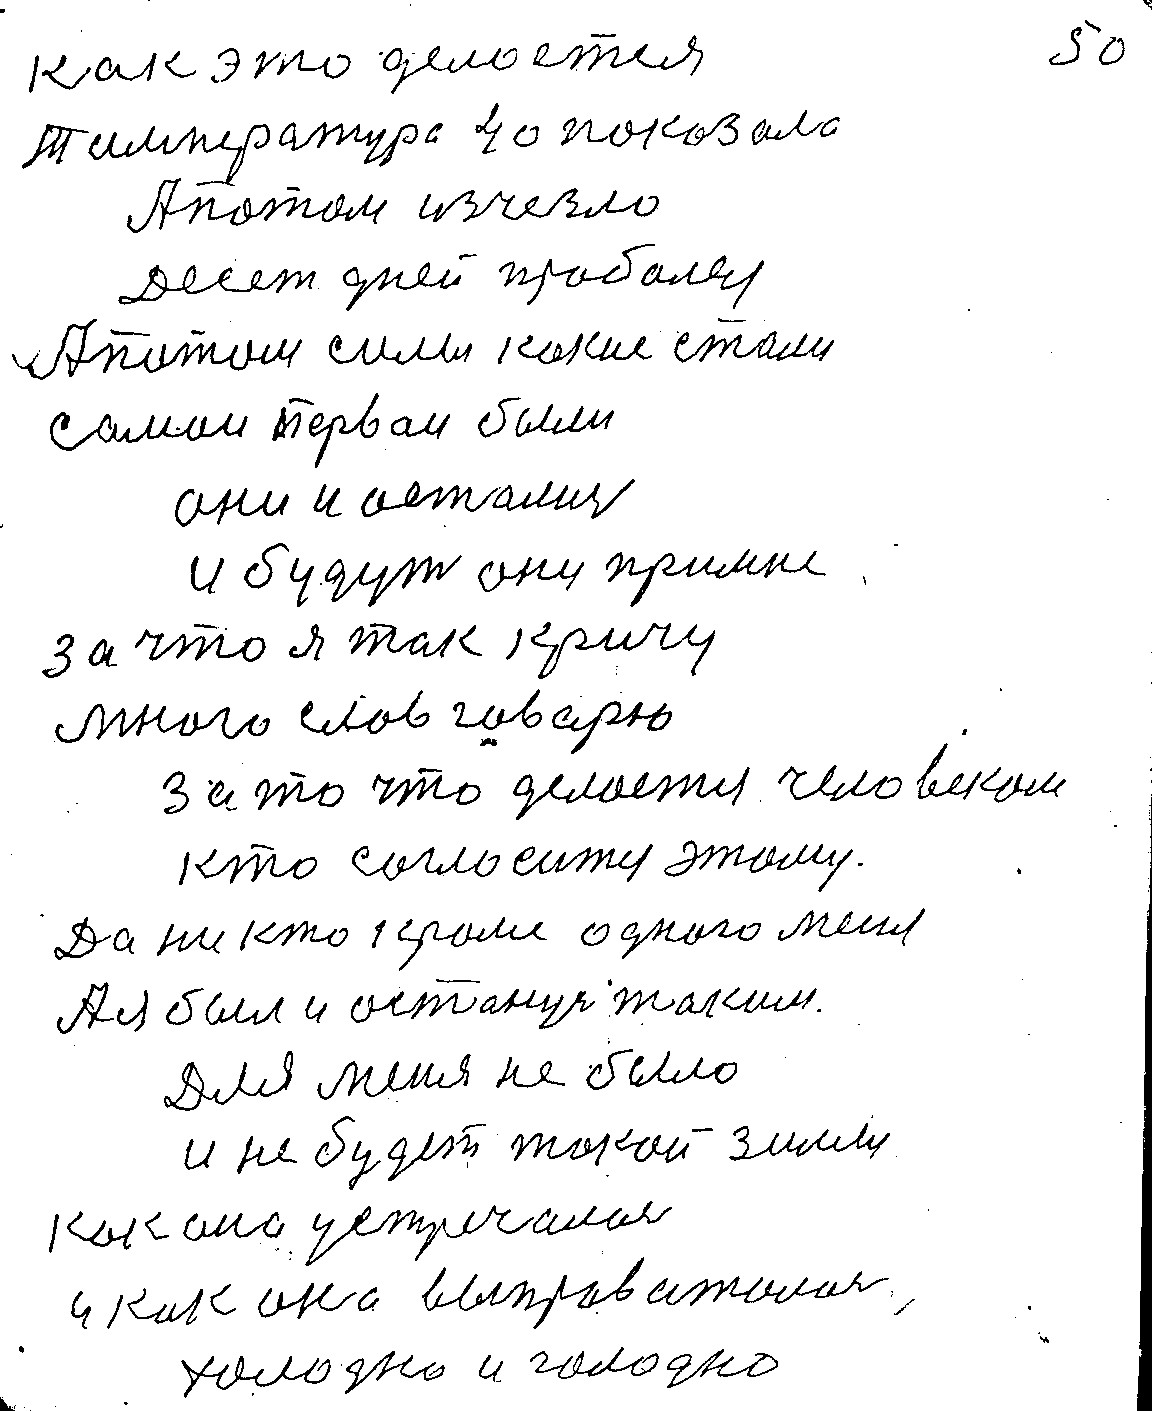 50
как это делоется
Температура 40 показола
А потом изчезло
Десет дней проболел
А потом силы кокие стали
самои первои были
они и остались
и будут они примне
за что я так кричу
много слов говарю
за то что делоется человеком
кто соглоситя этому.
Да никто кроме одного меня
А я был и останусь таким.
Для меня не было
и не будет токой зимы
как она устречалоя
и как она выправаталоя,
холодно и голодно